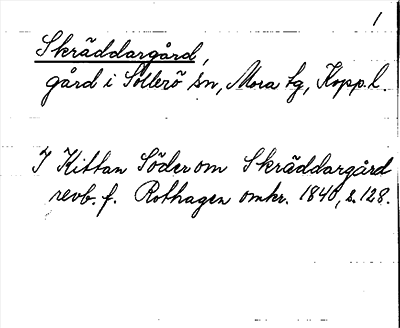 1
Skräddargård,
gård i Sollerö sn, Mora tg, Kopp.l.
I Kittan Söder om Skräddargård
revb. f. Rothagen omkr. 1840, s. 128.